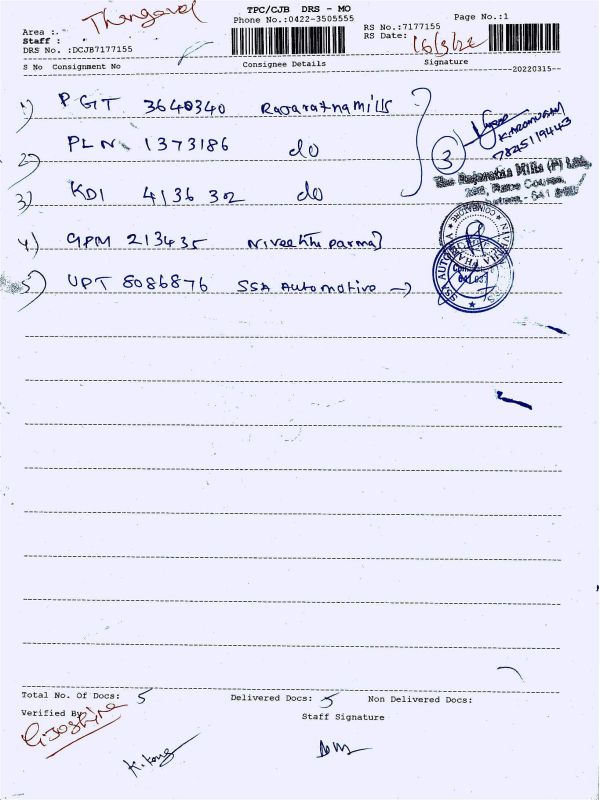 Thangavel
TPC/CJB DRS - MO
Phone No.:0422-3505555
Page No.:1
Area :.
Staff :
DRS No. :DCJB7177155
RS No.:7177155
RS Date: 16/3/22
S No Consignment No Consignee Details Signature
--20220315--
1) PGT 3640340 Rajaratna mills
2) PLN 1373186 do
3) KDI 4136 32 do
3
K. ARUMUGAM
7845119443
The Rajaratna Mills (P) Ltd.,
4) GPM 213435 Niveethi parma
5) UPT 8086876 SSA Automotive →
Total No. Of Docs: 5 Delivered Docs: 5 Non Delivered Docs:
Verified By
Staff Signature